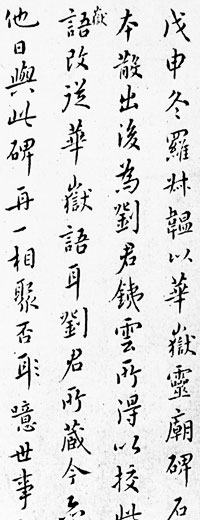 戊申冬羅叔韞以華嶽靈廟碑石
本散出後為劉君銕雲所得以挍此
嶽
語改從華嶽語耳劉君所蔵今
他日與此碑再一相聚否耶噫世事